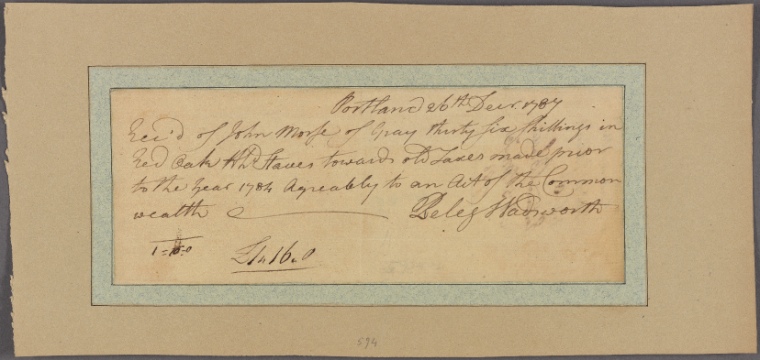 Portland 26th Decr. 1787
Rec'd of John Morse of Gray thirty six shillings in
Red Oak Hhd Staves towards old Taxes made prior
to the Year 1784 Agreeably to an Act of the Common
wealth Peleg Wadsworth
£1 " 16 " 0
594